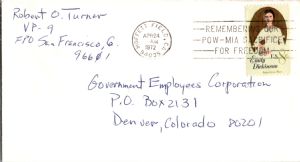 Robert O. Turner
VP-9
FPO San Francisco, C.
96601
MOFFETT FIELD, CA
APR 24
AM
1972
94035
REMEMBER
POW-MIA SACRIFICE
FOR FREEDOM
Emily
Dickinson
8c
Government Employees Corporation
P.O. Box 2131
Denver, Colorado 80201